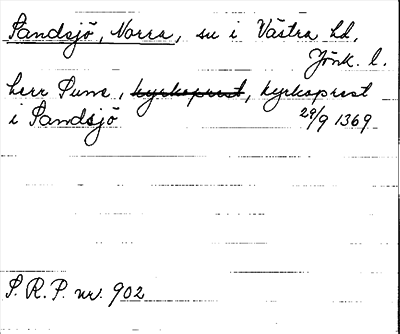 Sandsjö, Norra, sn i Västra hd,
Jönk. l.
herr Sune, kyrkoprest, kyrkoprest
i Sandsjö 29/9 1369
S. R. P. nr. 902